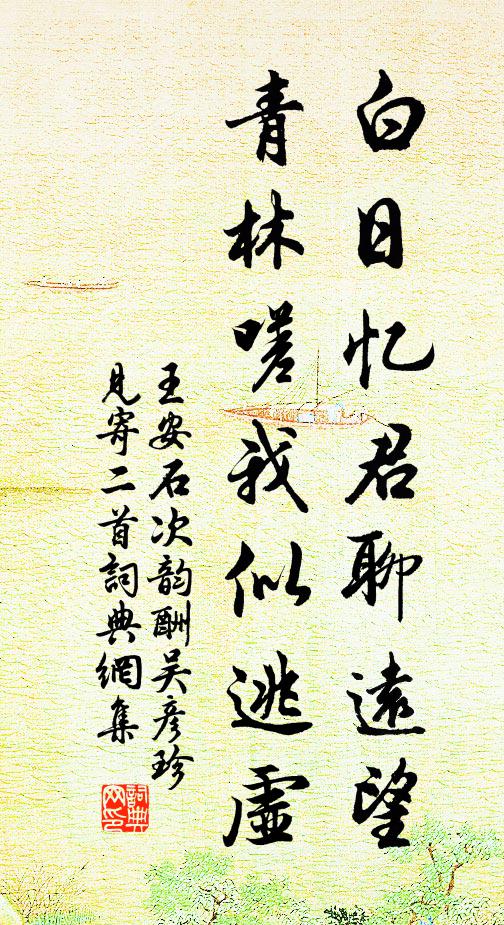 白日忆君聊遠望
青林嗟我似逃虛
王安石次韵酬吴彦珍
見寄二首詞典網集
詞典
网印